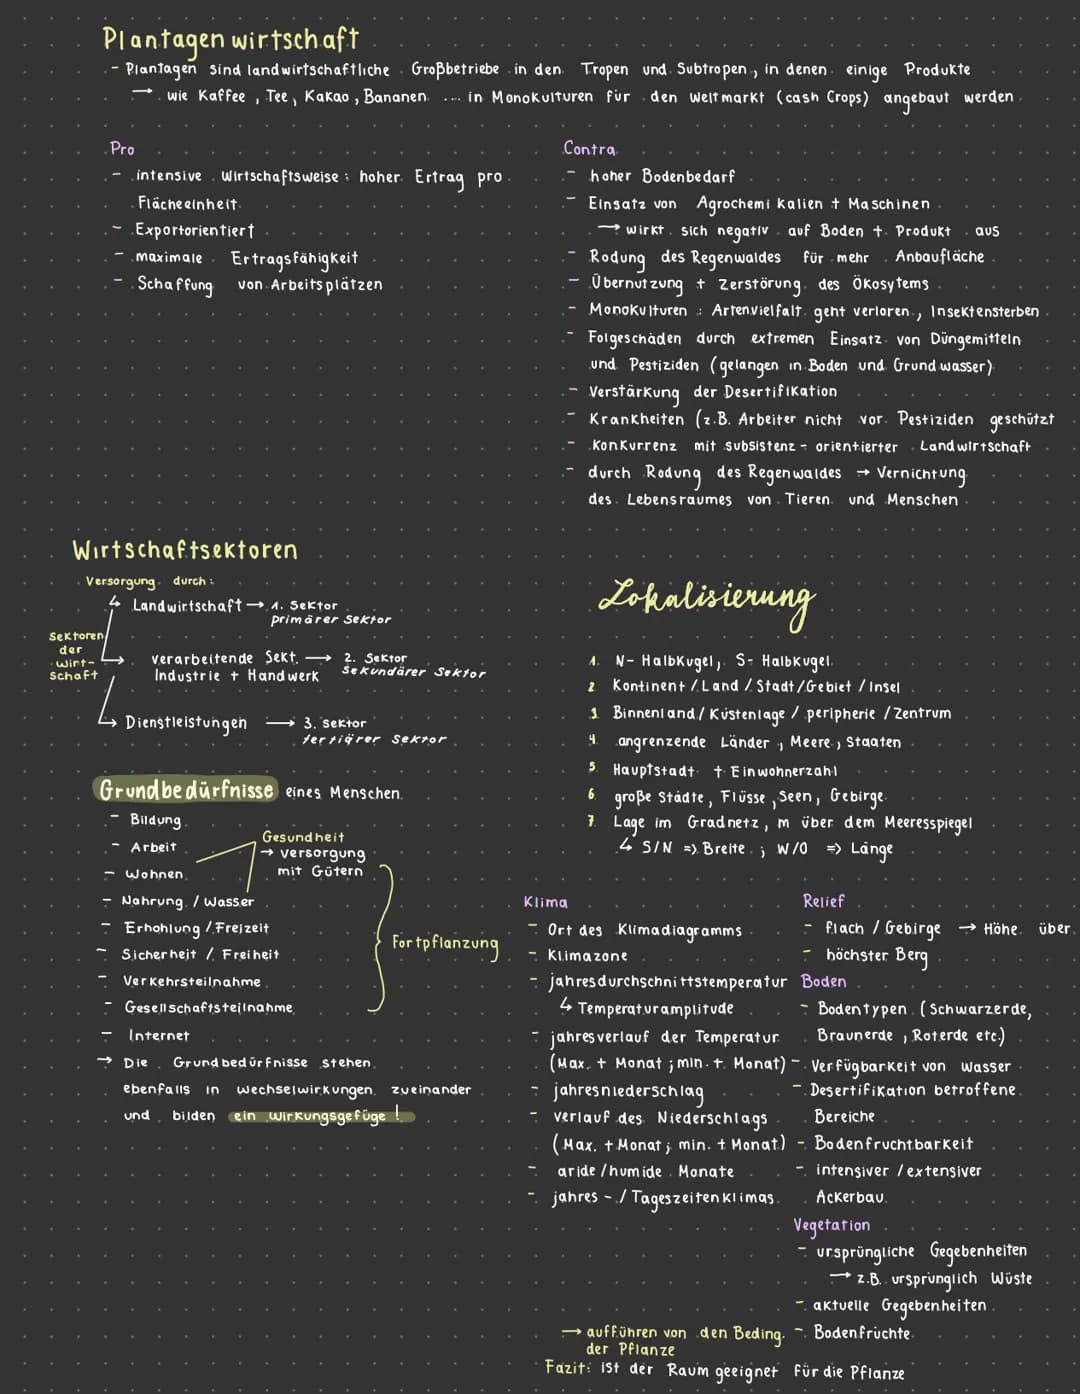 Plantagenwirtschaft
- Plantagen sind landwirtschaftliche Großbetriebe in den Tropen und Subtropen, in denen einige Produkte
→ wie Kaffee, Tee, Kakao, Bananen ... in Monokulturen für den Weltmarkt (cash Crops) angebaut werden
Pro
- intensive Wirtschaftsweise: hoher Ertrag pro
Flächeeinheit
- Exportorientiert
- maximale Ertragsfähigkeit
- Schaffung von Arbeitsplätzen
Contra
- hoher Bodenbedarf
- Einsatz von Agrochemikalien + Maschinen
→ wirkt sich negativ auf Boden + Produkt aus
- Rodung des Regenwaldes für mehr Anbaufläche
- Übernutzung + Zerstörung des Ökosytems
- Monokulturen: Artenvielfalt geht verloren, Insektensterben
- Folgeschäden durch extremen Einsatz von Düngemitteln
und Pestiziden (gelangen in Boden und Grundwasser)
- Verstärkung der Desertifikation
- Krankheiten (z.B. Arbeiter nicht vor Pestiziden geschützt
- Konkurrenz mit subsistenz-orientierter Landwirtschaft
- durch Rodung des Regenwaldes → Vernichtung
des Lebensraumes von Tieren und Menschen
Wirtschaftsektoren
Versorgung durch:
↳ Landwirtschaft → 1. Sektor
primärer Sektor
Sektoren
der
Wirt-
schaft
verarbeitende Sekt. → 2. Sektor
Industrie + Handwerk sekundärer Sektor
Dienstleistungen → 3. Sektor
tertiärer Sektor
Grundbedürfnisse eines Menschen
- Bildung
- Arbeit
- Wohnen
- Nahrung / Wasser
- Erhohlung / Freizeit
- Sicherheit / Freiheit
- Verkehrsteilnahme
- Gesellschaftsteilnahme
- Internet
Gesundheit
→ Versorgung
mit Gütern
Fortpflanzung
→ Die Grundbedürfnisse stehen
ebenfalls in wechselwirkungen zueinander
und bilden ein Wirkungsgefüge!
Lokalisierung
1. N-Halbkugel, S-Halbkugel
2. Kontinent / Land / Stadt / Gebiet / Insel
3. Binnenland / Küstenlage / peripherie / Zentrum
4. angrenzende Länder, Meere, Staaten
5. Hauptstadt + Einwohnerzahl
6. große Städte, Flüsse, Seen, Gebirge
7. Lage im Gradnetz, m über dem Meeresspiegel
↳ S/N => Breite ; W/O => Länge
Klima
- Ort des Klimadiagramms
- Klimazone
- jahresdurchschnittstemperatur
↳ Temperaturamplitude
- jahresverlauf der Temperatur
(Max. + Monat ; min. + Monat)
- jahresniederschlag
- verlauf des Niederschlags
(Max. + Monat ; min. + Monat)
- aride / humide Monate
- jahres- / Tageszeitenklimas
Relief
- flach / Gebirge → Höhe über
- höchster Berg
Boden
- Bodentypen (Schwarzerde,
Braunerde, Roterde etc.)
- Verfügbarkeit von Wasser
- Desertifikation betroffene
Bereiche
- Bodenfruchtbarkeit
- intensiver / extensiver
Ackerbau
Vegetation
- ursprüngliche Gegebenheiten
→ z.B. ursprünglich Wüste
- aktuelle Gegebenheiten
- Bodenfrüchte
→ aufführen von den Beding.
der Pflanze
Fazit: ist der Raum geeignet für die Pflanze